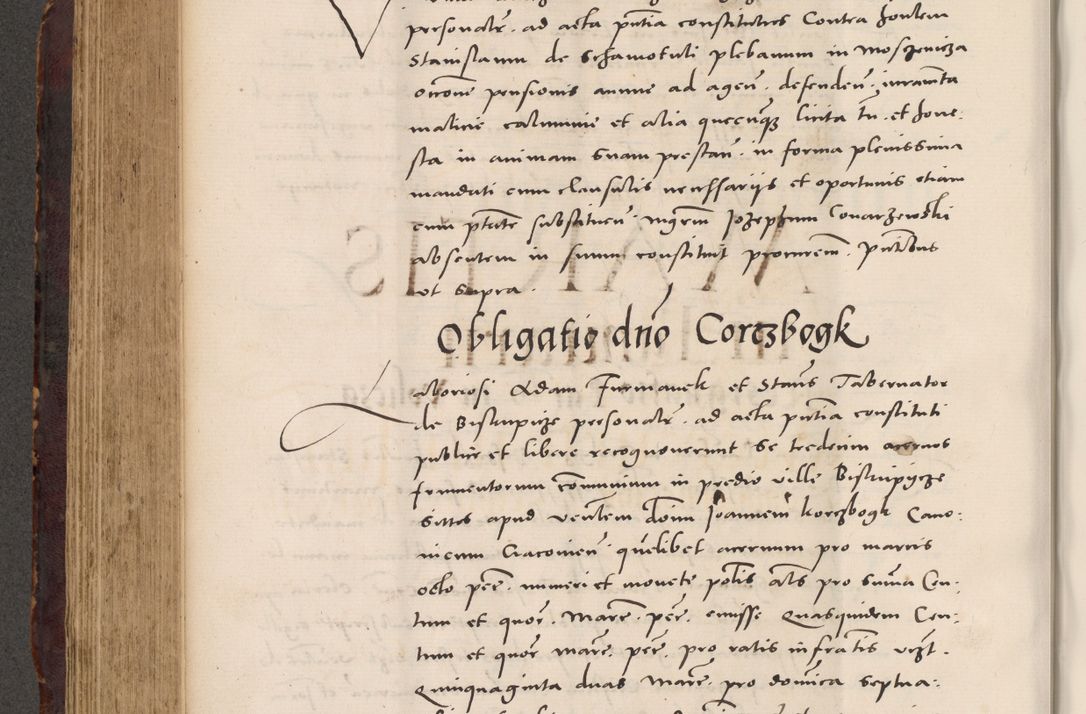 personalr̄ . ad acta pn̄tia constitutus Contra honlem
Stanislaum de Schamotuli plebanum in Moszenicza
occone pensionis annue ad agen̄ . defenden̄ . iuramt̄a
malicie calumnie et alia quecunq̄ȝ licita tn̄ . et hone:
sta in animam suam prestan̄ . in forma plenissima
mandati cum clausulis necessarijs et oportunis etiam
cum pt̄ate substituen̄ . Mgrm̄ Jozephum Conarzewski
absentem in suum constituit procurem̄ . pn̄tibus
vt supra .
Obligatio dn̄o Corczbogk
Laboriosi Adam Furmanek et Stan̄s Tabernator
de Biskupicze personalr̄ . ad acta pn̄tia constituti
publice et libere recognouerunt se tredecim aceruos
frumentorum com̄unium in predio ville Biskupycze
sittos apud ven̄lem dom̄ Joannem korczbogk Cano:
nicum Cracouien̄ . quēlibet aceruum pro marcis
octo pec̄ . numeri et monete pol̄is als̄ pro sum̄a Cen:
tum et quor̄ . Marc̄ . pec̄ . emisse Quasquidem Cen:
tum et quor̄ marc̄ . pec̄ . pro ratis infrat̄is vrz̄t .
Quinquaginta duas Marc̄ . pro dom̄ica septua: